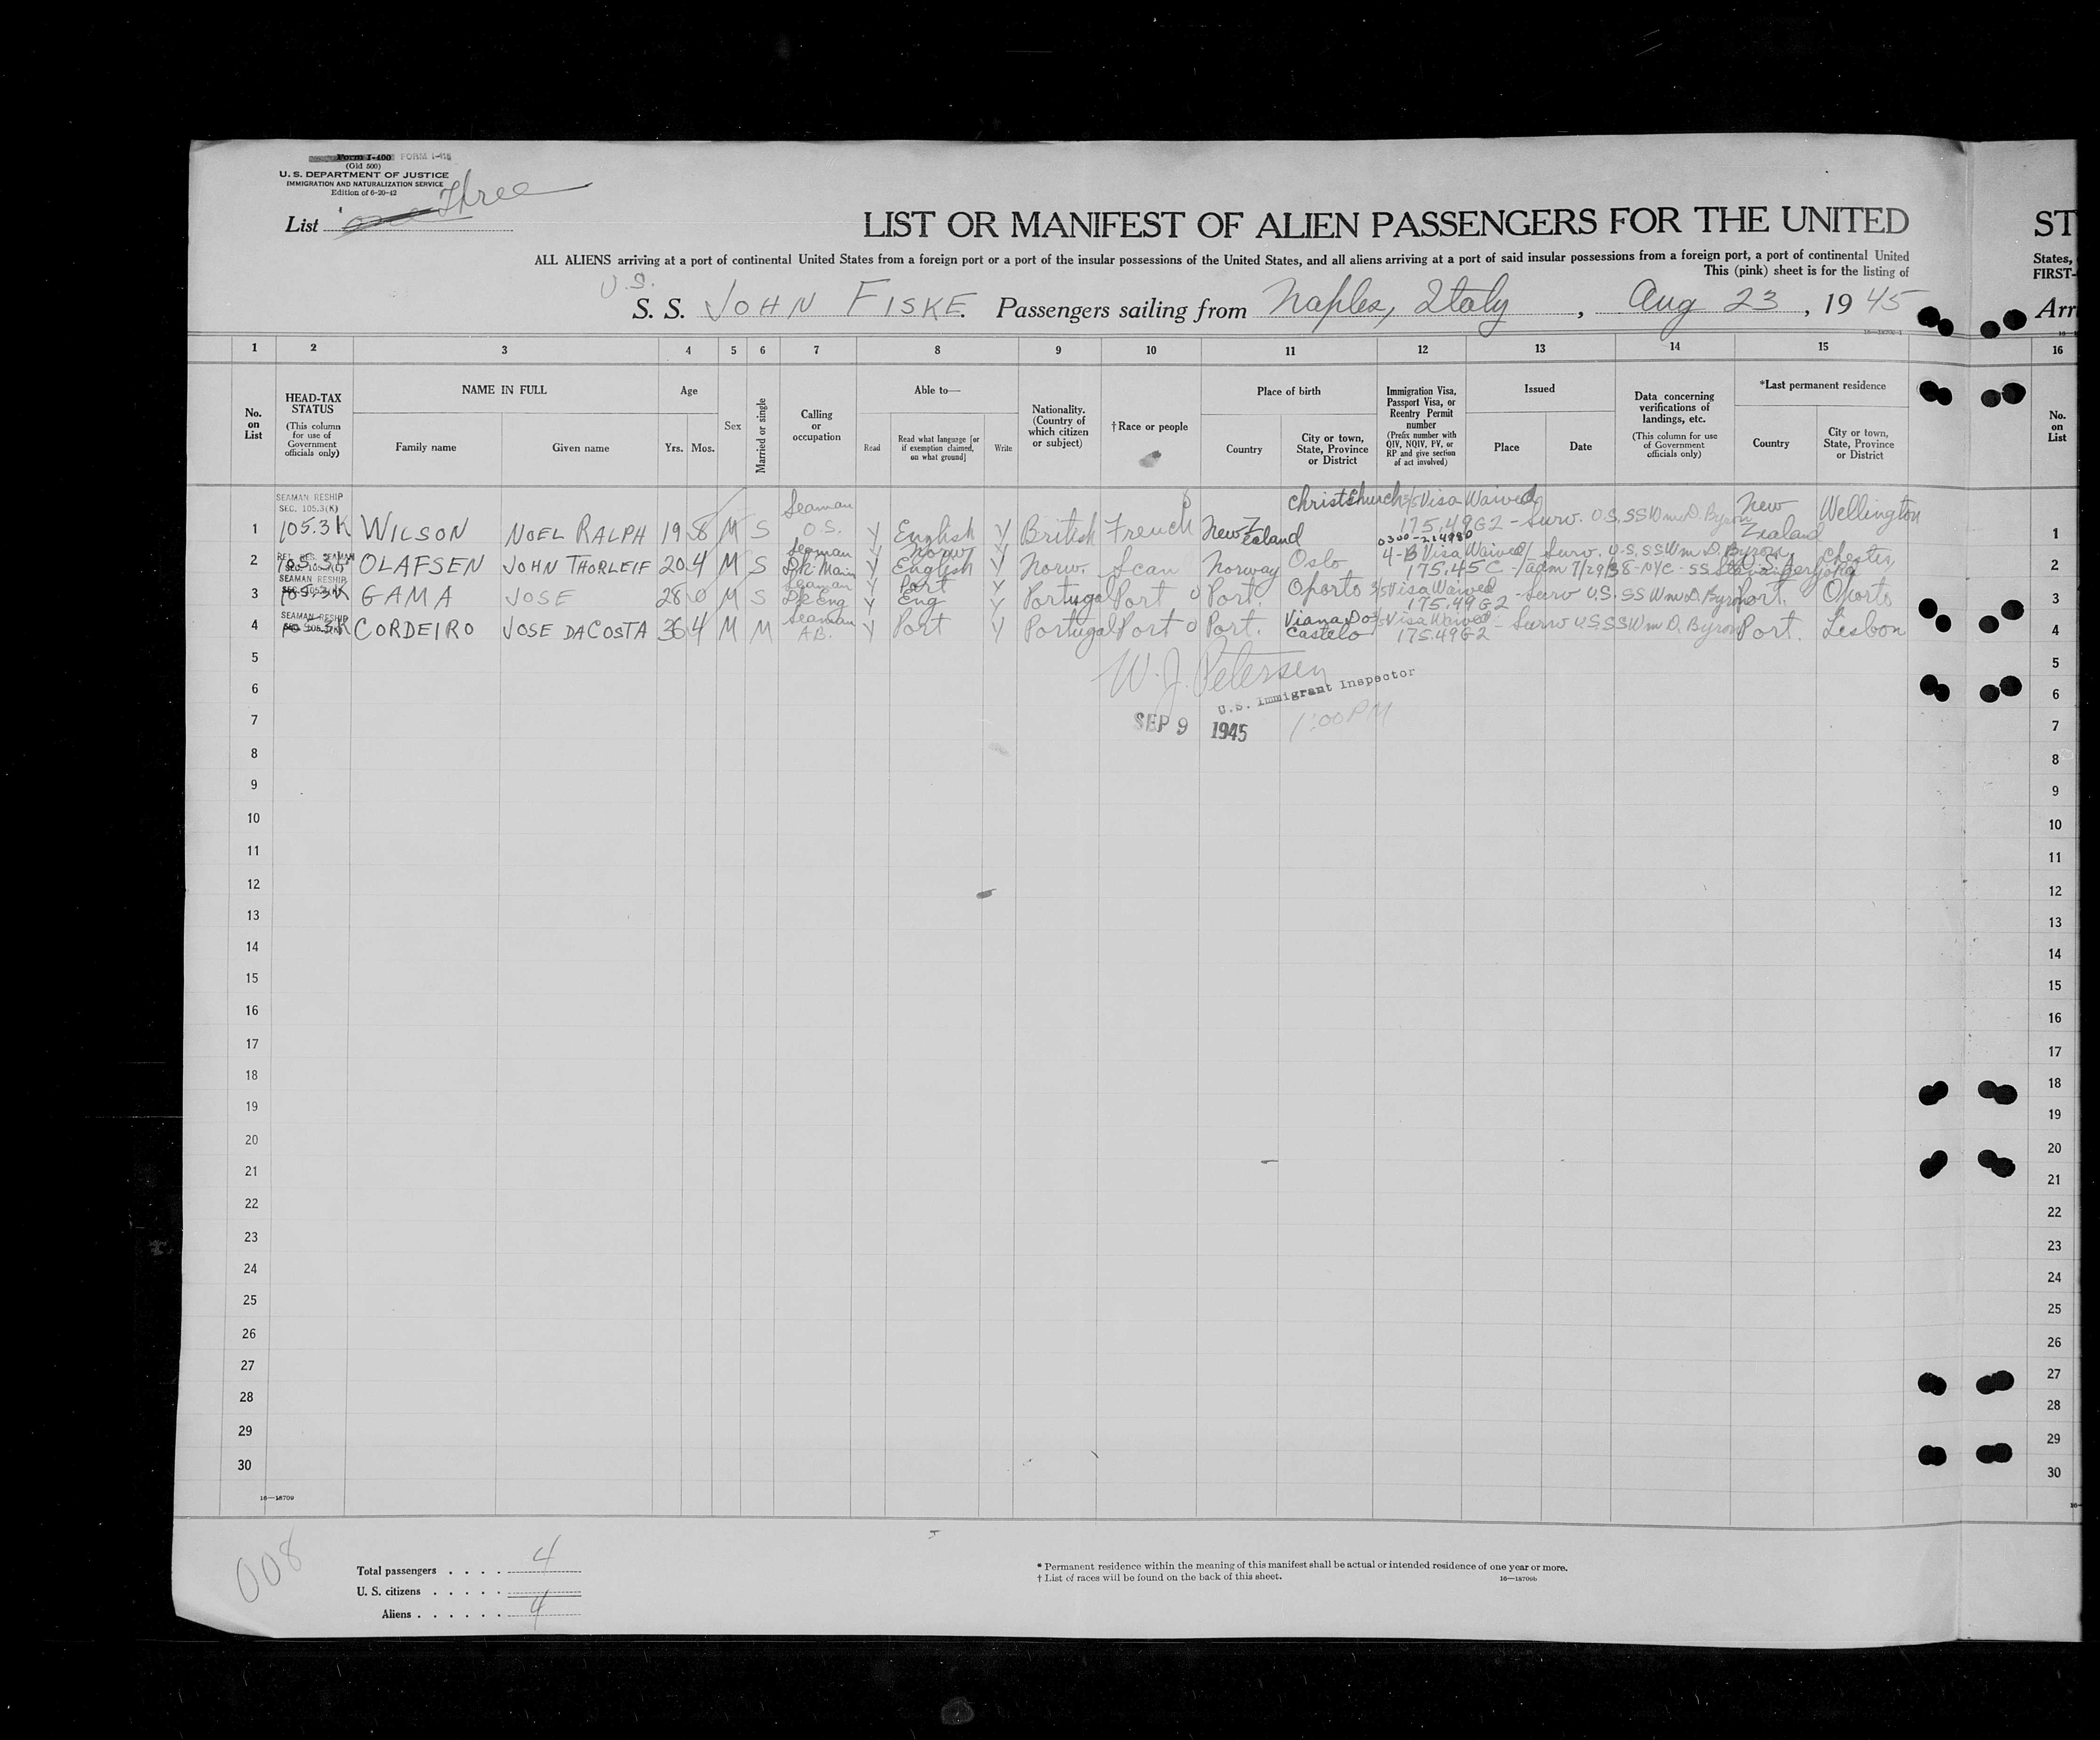 Form I-400 FORM I-415
(Old 500)
U. S. DEPARTMENT OF JUSTICE
IMMIGRATION AND NATURALIZATION SERVICE
Edition of 6-20-42
List one Three
LIST OR MANIFEST OF ALIEN PASSENGERS FOR THE UNITED
ST
ALL ALIENS arriving at a port of continental United States from a foreign port or a port of the insular possessions of the United States, and all aliens arriving at a port of said insular possessions from a foreign port, a port of continental United
States,
This (pink) sheet is for the listing of
FIRST-
U.S.
S. S. JOHN FISKE. Passengers sailing from Naples, Italy, Aug 23, 1945
Arri
1 2 3 4 5 6 7 8 9 10 11 12 13 14 15 16
No. on List
HEAD-TAX STATUS
(This column for use of Government officials only)
NAME IN FULL
Family name Given name
Age
Yrs. Mos.
Sex
Married or single
Calling or occupation
Able to—
Read Read what language [or if exemption claimed, on what ground] Write
Nationality. (Country of which citizen or subject)
†Race or people
Place of birth
Country City or town, State, Province or District
Immigration Visa, Passport Visa, or Reentry Permit number
(Prefix number with QIV, NQIV, PV, or RP and give section of act involved)
Issued
Place Date
Data concerning verifications of landings, etc.
(This column for use of Government officials only)
*Last permanent residence
Country City or town, State, Province or District
No. on List
SEAMAN RESHIP
SEC. 105.3(K)
1 105.3K WILSON NOEL RALPH 19 8 M S Seaman O.S. Y English Y British French New Zealand Christchurch 3/5 Visa Waived 175.49G2 - Surv. U.S. SS Wm D. Byron New Zealand Wellington 1
0300-214980
2 OLAFSEN JOHN THORLEIF 20 4 M S Seaman Dk. Main Y Norw English Y Norw. Scan Norway Oslo 4-B Visa Waived 175.45C - Surv. U.S. SS Wm D. Byron / adm 7/29/38 - NYC - SS Stavangerfjord Chester, 2
SEAMAN RESHIP
3 105.3K GAMA JOSE 28 0 M S Seaman Dk Eng Y Port Eng Y Portugal Port Port. Oporto 3/5 Visa Waived 175.49G2 - Surv U.S. SS Wm D. Byron Port. Oporto 3
SEAMAN RESHIP
4 105.3K CORDEIRO JOSE DACOSTA 36 4 M M Seaman A.B. Y Port Y Portugal Port Port. Viana Do Castelo 3/5 Visa Waived 175.49G2 - Surv U.S. SS Wm D. Byron Port. Lisbon 4
5 5
W. J. Petersen
U.S. Immigrant Inspector
6 6
SEP 9 1945 1:00 PM
7 7
8 8
9 9
10 10
11 11
12 12
13 13
14 14
15 15
16 16
17 17
18 18
19 19
20 20
21 21
22 22
23 23
24 24
25 25
26 26
27 27
28 28
29 29
30 30
16—18709
008
Total passengers . . . . 4
U. S. citizens . . . . .
Aliens . . . . . . 4
* Permanent residence within the meaning of this manifest shall be actual or intended residence of one year or more.
† List of races will be found on the back of this sheet.